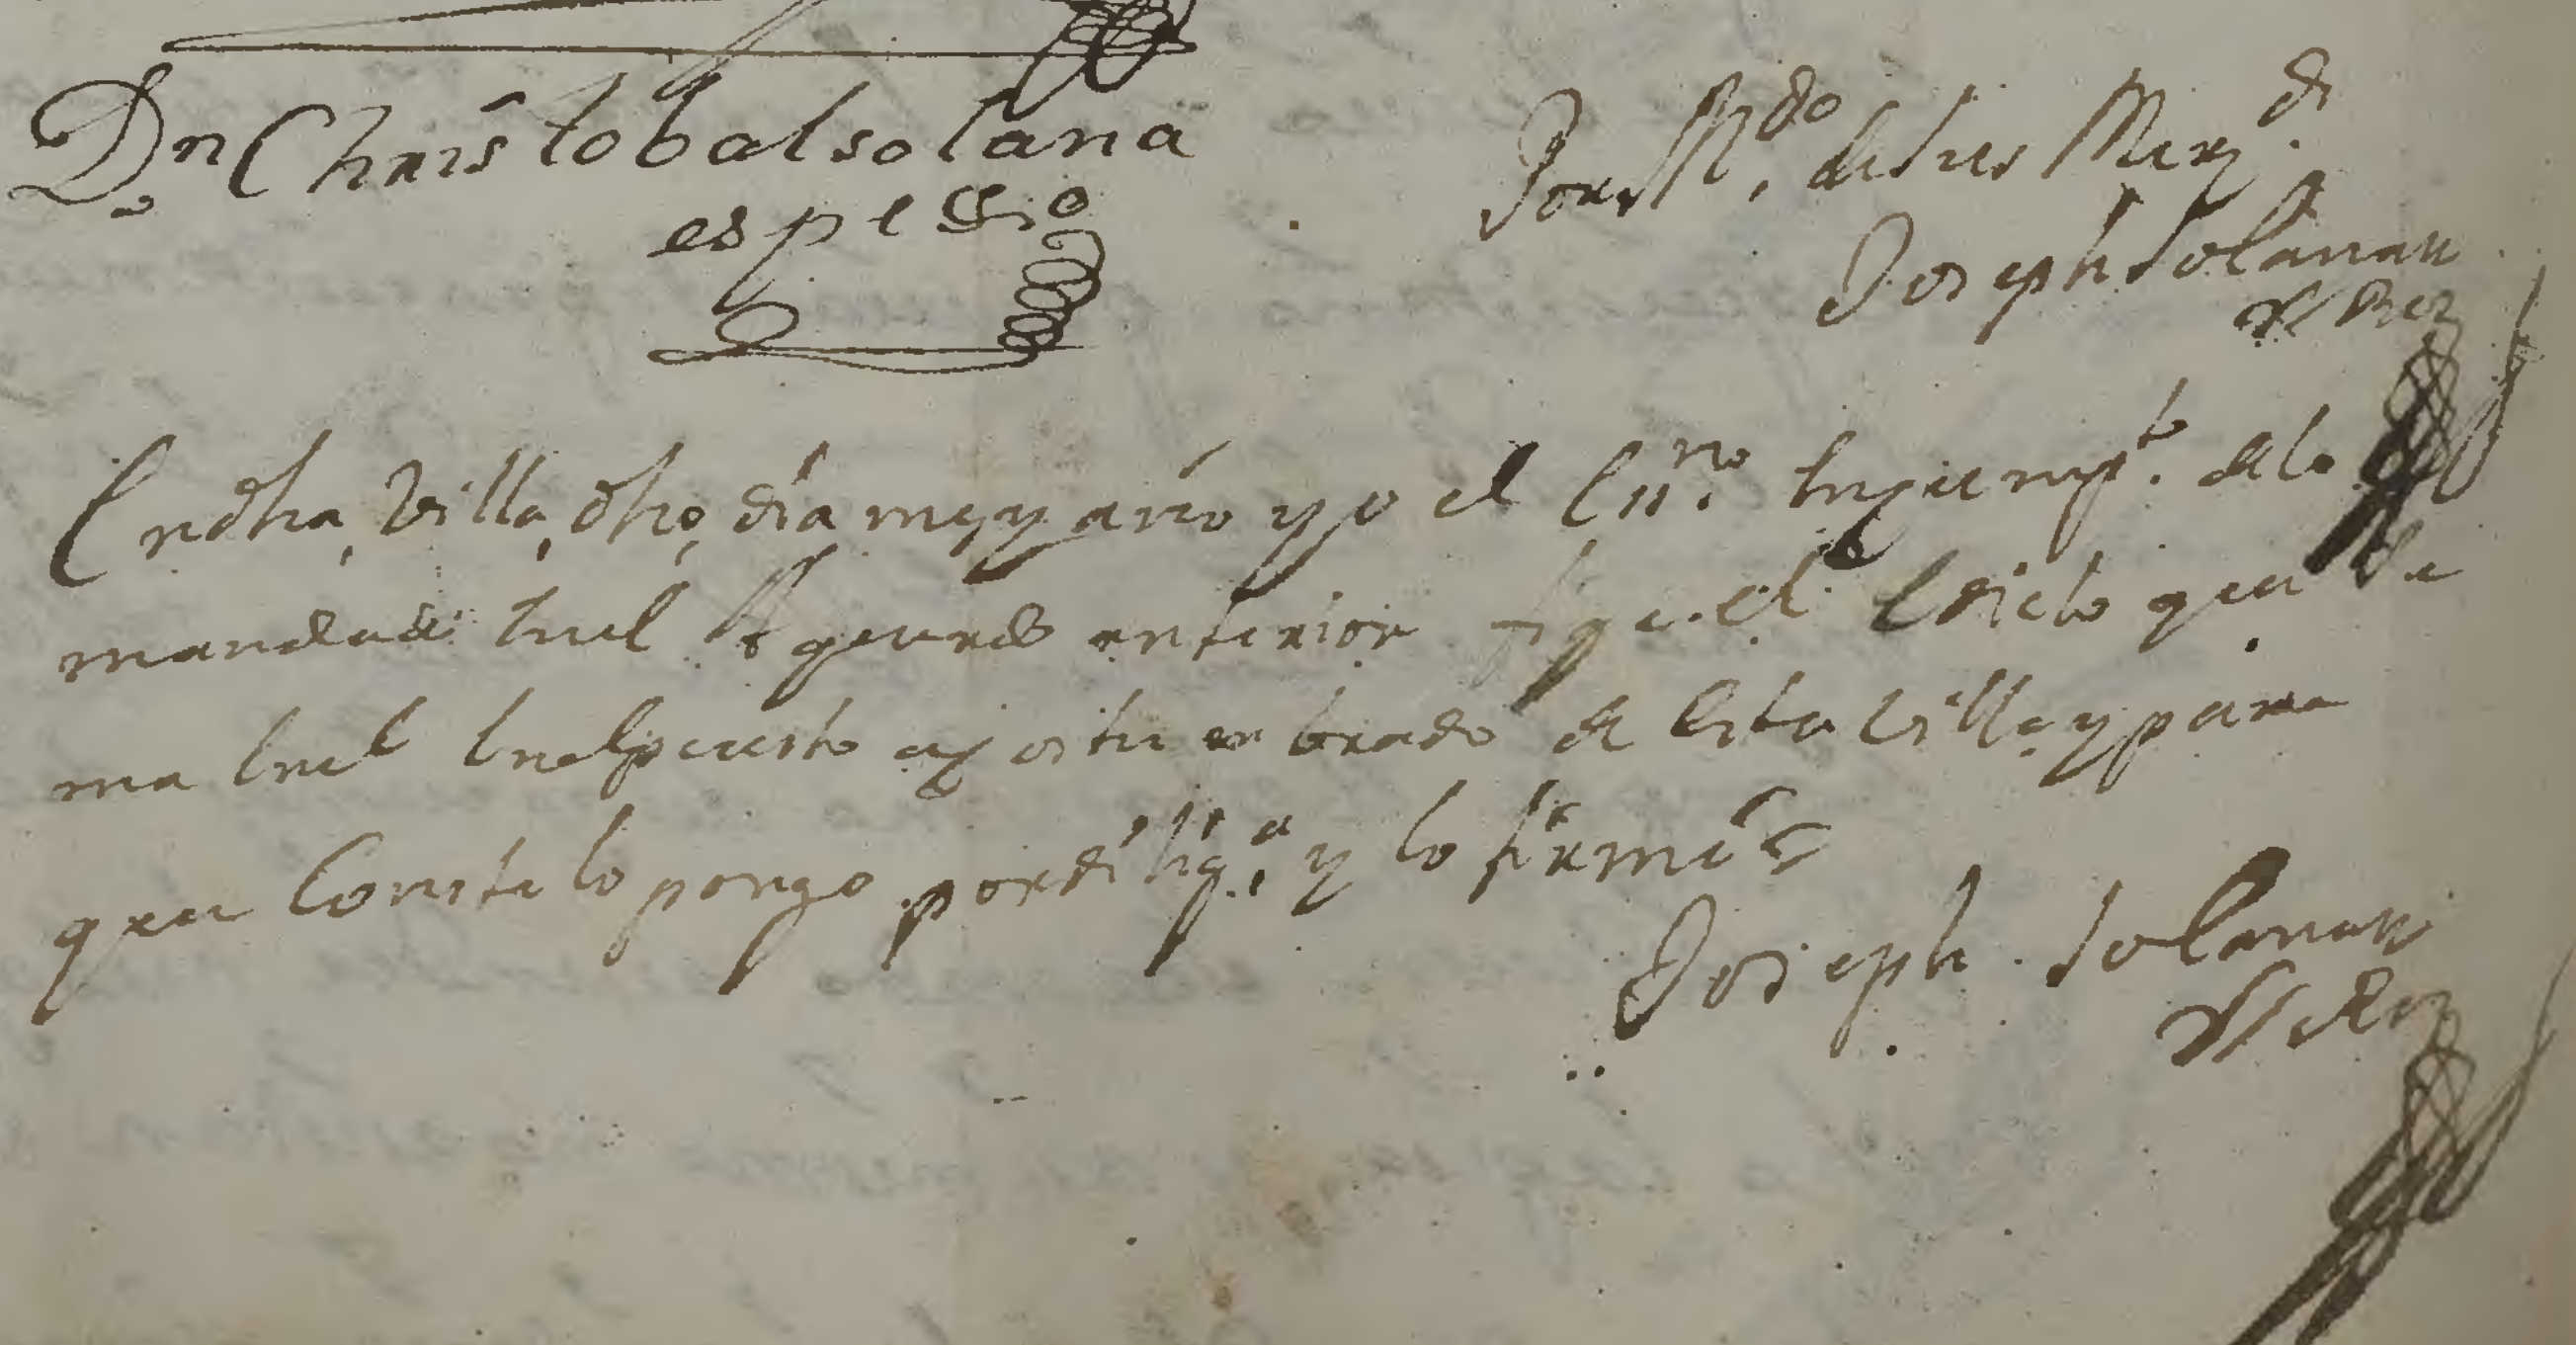 Dn Christobal solana
espejo
Por Mdo. de sus Merzds.
Joseph Solanan
En dha Villa, dho, dia mes y año yo el Enno. en cumpto. de lo
mandado en el Aquerdo anterior fije el Edicto que se
ma en el en el puesto acostumbrado de Esta Villa, y para
que Conste lo pongo por diliga. y lo firmé
Joseph Solanan